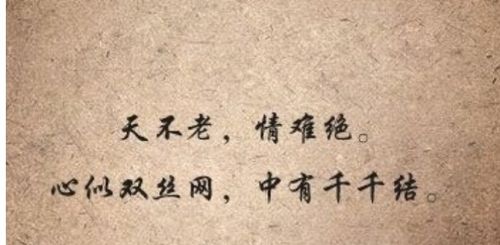 天不老，情难绝。
心似双丝网，中有千千结。